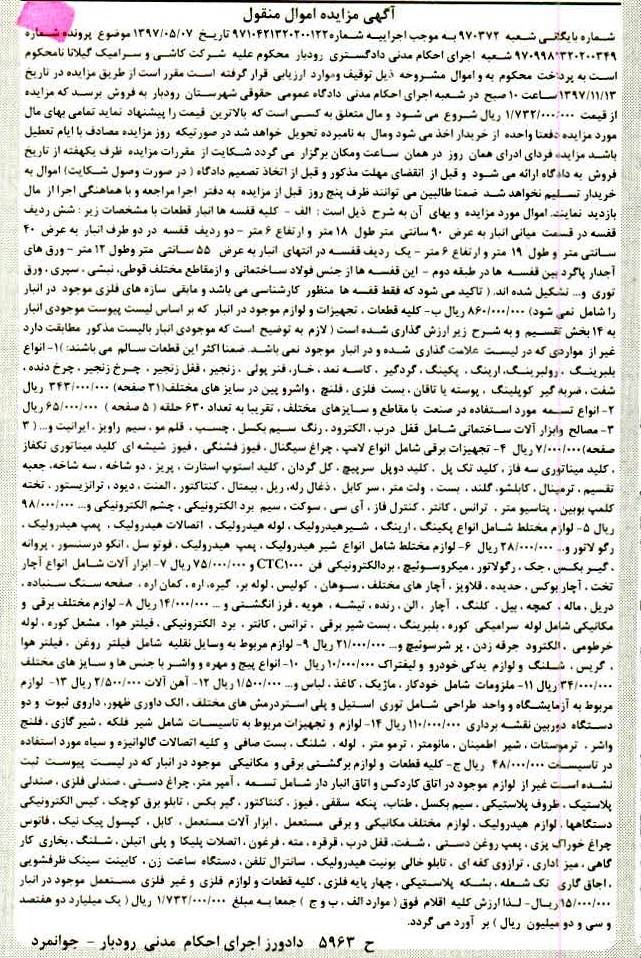 آگهی مزایده اموال منقول
شماره بایگانی شعبه ۹۷۰۳۷۲ به موجب اجراییه شماره ۹۷۱۰۴۲۱۳۲۰۲۰۰۱۲۲ تاریخ ۱۳۹۷/۰۵/۰۷ موضوع پرونده شماره
۹۷۰۹۹۸۱۳۲۰۲۰۰۳۴۹ شعبه اجرای احکام مدنی دادگستری رودبار محکوم علیه شرکت کاشی و سرامیک گیلانا نامحکوم
است به پرداخت محکوم به و اموال مشروحه ذیل توقیف وموارد ارزیابی قرار گرفته است مقرر است از طریق مزایده در تاریخ
۱۳۹۷/۱۱/۱۳ ساعت ۱۰ صبح در شعبه اجرای احکام مدنی دادگاه عمومی حقوقی شهرستان رودبار به فروش برسد که مزایده
از قیمت ۱/۷۳۲/۰۰۰/۰۰۰ ریال شروع می شود و مال متعلق به کسی است که بالاترین قیمت را پیشنهاد نماید تمامی بهای مال
مورد مزایده دفعتا واحده از خریدار اخذ می شود ومال به نامبرده تحویل خواهد شد در صورتیکه روز مزایده مصادف با ایام تعطیل
باشد مزایده فردای ادرای همان روز در همان ساعت ومکان برگزار می گردد شکایت از مقررات مزایده ظرف یکهفته از تاریخ
فروش به دادگاه ارائه می شود و قبل از انقضای مهلت مذکور و قبل از اتخاذ تصمیم دادگاه ( در صورت وصول شکایت) اموال به
خریدار تسلیم نخواهد شد ضمنا طالبین می توانند ظرف پنج روز قبل از مزایده به دفتر اجرا مراجعه و با هماهنگی اجرا از مال
بازدید نمایند. اموال مورد مزایده و بهای آن به شرح ذیل است : الف - کلیه قفسه ها انبار قطعات با مشخصات زیر : شش ردیف
قفسه در قسمت میانی انبار به عرض ۹۰ سانتی متر طول ۱۸ متر و ارتفاع ۶ متر - دو ردیف قفسه در دو طرف انبار به عرض ۴۰
سانتی متر و طول ۱۹ متر و ارتفاع ۶ متر - یک ردیف قفسه در انتهای انبار به عرض ۵۵ سانتی متر وطول ۱۲ متر - ورق های
آجدار پاگرد بین قفسه ها در طبقه دوم - این قفسه ها از جنس فولاد ساختمانی و ازمقاطع مختلف قوطی، نبشی ، سپری ، ورق
توری و... تشکیل شده اند. ( تاکید می شود که فقط قفسه ها منظور کارشناسی می باشد و مابقی سازه های فلزی موجود در انبار
را شامل نمی شود) ۸۶۰/۰۰۰/۰۰۰ ریال ب- کلیه قطعات ، تجهیزات و لوازم موجود در انبار که بر اساس لیست پیوست موجودی انبار
به ۱۴ بخش تقسیم و به شرح زیر ارزش گذاری شده است ( لازم به توضیح است که موجودی انبار بالیست مذکور مطابقت دارد
غیر از مواردی که در لیست علامت گذاری شده و در انبار موجود نمی باشد. ضمنا اکثر این قطعات سالم می باشند: )۱- انواع
بلبرینگ ، رولبرینگ، ارینگ ، پکینگ ، گردگیر ، کاسه نمد ، خار، فنر پولی ، زنجیر ، قفل زنجیر ، چرخ زنجیر ، چرخ دنده ،
شفت ، ضربه گیر کوپلینگ ، پوسته یا تاقان، بست فلزی ، فلنج ، واشرو پین در سایز های مختلف(۳۱ صفحه) ۳۴۳/۰۰۰/۰۰۰ ریال
۲- انواع تسمه مورد استفاده در صنعت با مقاطع و سایزهای مختلف ، تقریبا به تعداد ۶۳۰ حلقه ( ۵ صفحه ) ۶۵/۰۰۰/۰۰۰ ریال
۳- مصالح وابزار آلات ساختمانی شامل قفل درب ، الکترود ، رنگ سیم بکسل ، چسب ، قلم مو ، سیم راویز ، ایرانیت و... ( ۳
صفحه) ۷/۰۰۰/۰۰۰ ریال ۴- تجهیزات برقی شامل انواع لامپ ، چراغ سیگنال ، فیوز فشنگی ، فیوز شیشه ای کلید میناتوری تکفاز
، کلید میناتوری سه فاز ، کلید تک پل ، کلید دوپل سرپیچ ، کل گردان ، کلید استوپ استارت ، پریز ، دو شاخه ، سه شاخه، جعبه
تقسیم ، ترمینال ، کابلشو، گلند ، بست ، ولت متر ، سر کابل ، ذغال رله، ریل ، بیمتال ، کنتاکتور ، المنت ، دیود ، ترانزیستور ، تخته
کلمپ بوبین ، پتاسیو متر ، ترانس ، کانتر ، کنترل فاز ، آی سی ، سوکت ، سیم برد الکترونیکی ، چشم الکترونیکی و... ۹۸/۰۰۰/۰۰۰
ریال ۵- لوازم مختلط شامل انواع پکینگ ، ارینگ ، شیرهیدرولیک ، لوله هیدرولیک ، اتصالات هیدرولیک ، پمپ هیدرولیک ،
رگو لاتور و... ۲۸/۰۰۰/۰۰۰ ریال ۶- لوازم مختلط شامل انواع شیر هیدرولیک ، پمپ هیدرولیک ، فوتو سل ، انکو درسنسور ، پروانه
، گیربکس ، جک ، رگولاتور ، میکروسوئیچ ، بردالکترونیکی فن CTC۱۰۰۰ و ۷۵/۰۰۰/۰۰۰ ریال ۷- ابزار آلات شامل انواع آچار
تخت ، آچار بوکس ، حدیده ، قلاویز ، آچار های مختلف ، سوهان ، کولیس ، لوله بر، گیره، اره ، کمان اره ، صفحه سنگ سنباده ،
دریل ، ماله ، کمچه ، بیل ، کلنگ ، آچار ، الن ، رنده ، تیشه ، هویه ، فرز انگشتی و ... ۱۴/۰۰۰/۰۰۰ ریال ۸- لوازم مختلط برقی و
مکانیکی شامل لوله سرامیکی کوره ، بلبرینگ ، بست شیر برقی ، ترانس ، کانتر ، برد الکترونیکی ، فیلتر هوا ، مشعل کوره ، لوله
خرطومی ، الکترود جرقه زدن ، پر شرسوئیچ و... ۲۱/۰۰۰/۰۰۰ ریال ۹- لوازم مربوط به وسایل نقلیه شامل فیلتر روغن ، فیلتر هوا
، گریس ، شلنگ و لوازم یدکی خودرو و لیفتراک ۱۰/۰۰۰/۰۰۰ ریال ۱۰- انواع پیچ و مهره و واشر با جنس ها و سایز های مختلف
۳۴/۰۰۰/۰۰۰ ریال ۱۱- ملزومات شامل خودکار ، ماژیک ، کاغذ ، لباس و... ۱/۵۰۰/۰۰۰ ریال ۱۲- آهن آلات ۲/۵۰۰/۰۰۰ ریال ۱۳- لوازم
مربوط به آزمایشگاه و واحد طراحی شامل توری استیل و پلی استردرمش های مختلف ، الک داوری ظهور، داروی ثبوت و دو
دستگاه دوربین نقشه برداری ۱۱۰/۰۰۰/۰۰۰ ریال ۱۴- لوازم و تجهیزات مربوط به تاسیسات شامل شیر فلکه ، شیر گازی ، فلنج
واشر ، ترموستات ، شیر اطمینان ، مانومتر ، ترمو متر ، لوله ، شلنگ ، بست صافی و کلیه اتصالات گالوانیزه و سیاه مورد استفاده
در تاسیسات ۴۸/۰۰۰/۰۰۰ ریال ج- کلیه قطعات و لوازم برگشتی برقی و مکانیکی موجود در انبار که در لیست پیوست ثبت
نشده است غیر از لوازم موجود در اتاق کاردکس و اتاق انبار دار شامل تسمه ، آمپر متر، چراغ دستی ، صندلی فلزی ، صندلی
پلاستیک ، ظروف پلاستیکی ، سیم بکسل ، طناب، پنکه سقفی ، فیوز ، کنتاکتور ، گیر بکس ، تابلو برق کوچک ، کیس الکترونیکی
دستگاهها ، لوازم هیدرولیک ، لوازم مختلف مکانیکی و برقی مستعمل ، ابزار آلات مستعمل ، کابل ، کپسول پیک نیک ، فانوس
چراغ خوراک پزی ، پمپ روغن دستی ، شفت، قفل درب ، قرقره ، مته ، فرغون ، اتصلات پلیکا و پلی اتیلن ، شلنگ ، بخاری کار
گاهی ، میز اداری ، ترازوی کفه ای ، تابلو خالی یونیت هیدرولیک ، سانترال تلفن ، دستگاه ساعت زن ، کابینت سینک ظرفشویی
، اجاق گازی تک شعله ، بشکه پلاستیکی ، چهار پایه فلزی ، کلیه قطعات و لوازم فلزی و غیر فلزی مستعمل موجود در انبار
۱۵/۰۰۰/۰۰۰ ریال - لذا ارزش کلیه اقلام فوق ( موارد الف ، ب و ج ) جمعا به مبلغ ۱/۷۳۲/۰۰۰/۰۰۰ ریال ( یک میلیارد دو هفتصد
و سی و دو میلیون ریال ) بر آورد می گردد.
ح ۵۹۶۳ دادورز اجرای احکام مدنی رودبار - جوانمرد